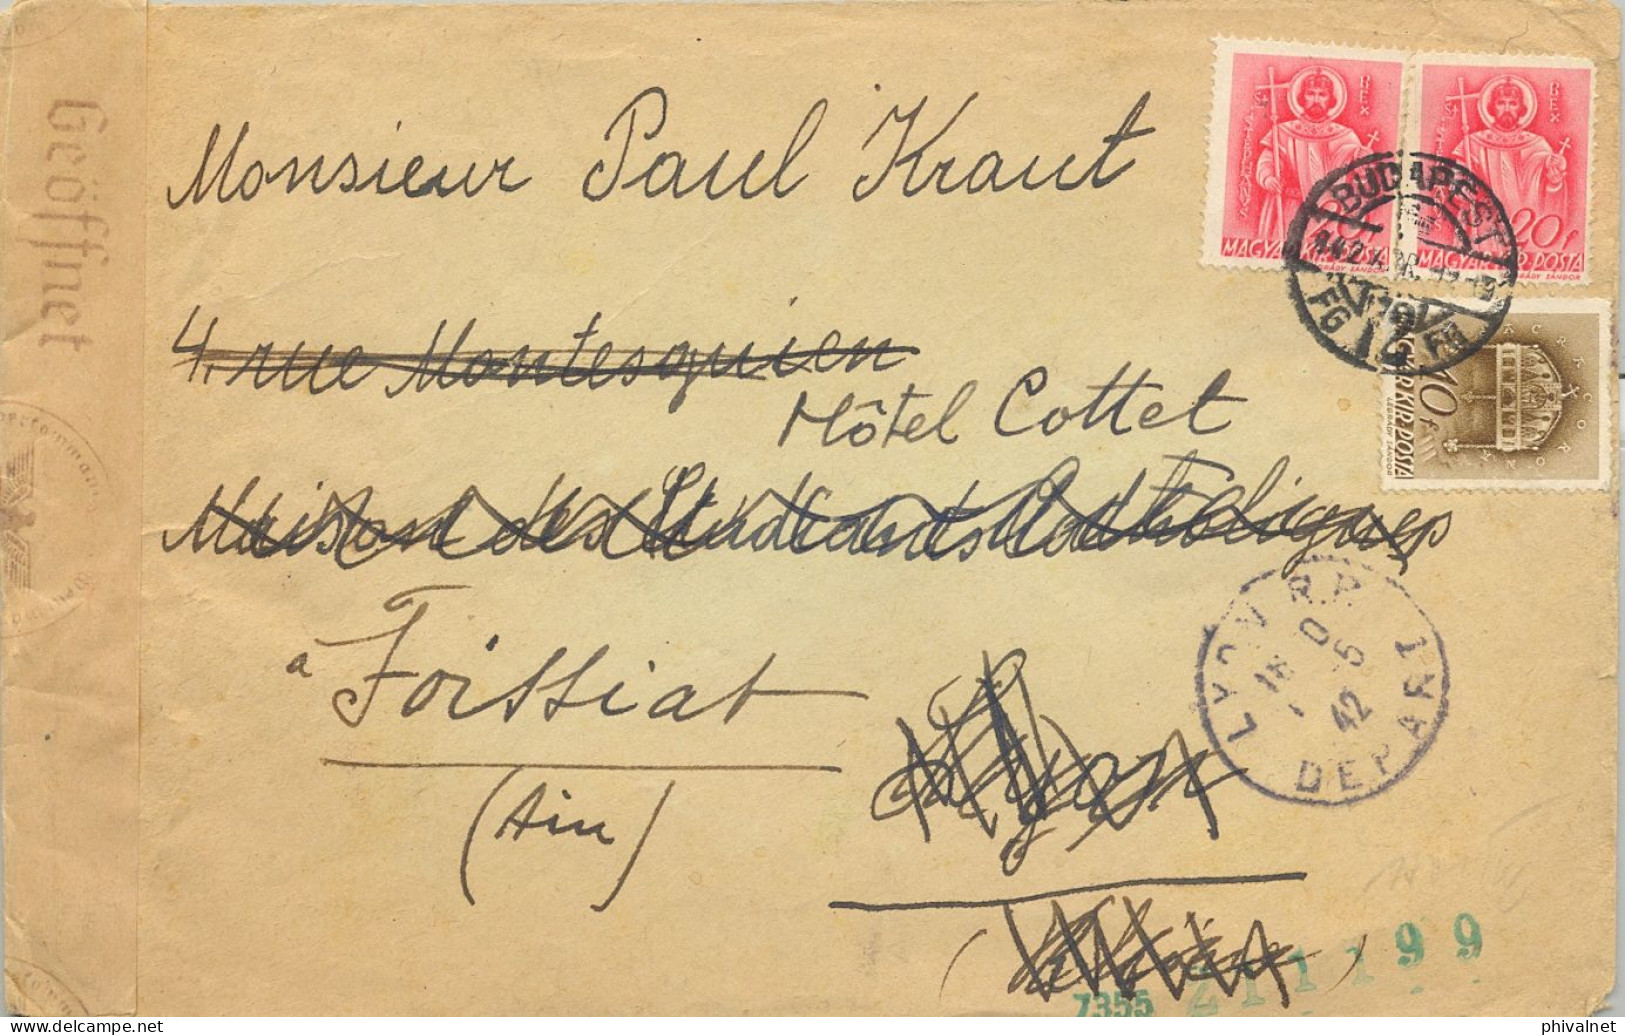 Geöffnet
Monsieur Paul Kraut
4, rue Montesquieu
Hôtel Cottet
Maison des Etudiants Catholiques
à Foissiat
(Ain)
Lyon
(Rhône)
REX
20f
MAGYAR KIR. POSTA
LÉGRÁDY SÁNDOR
REX
20f
MAGYAR KIR. POSTA
LÉGRÁDY SÁNDOR
10f
MAGYAR KIR. POSTA
LÉGRÁDY SÁNDOR
BUDAPEST
942 APR.
72
FG
LYON R.P.
DEPART
18 0
5
42
7355 211199
phivalnet